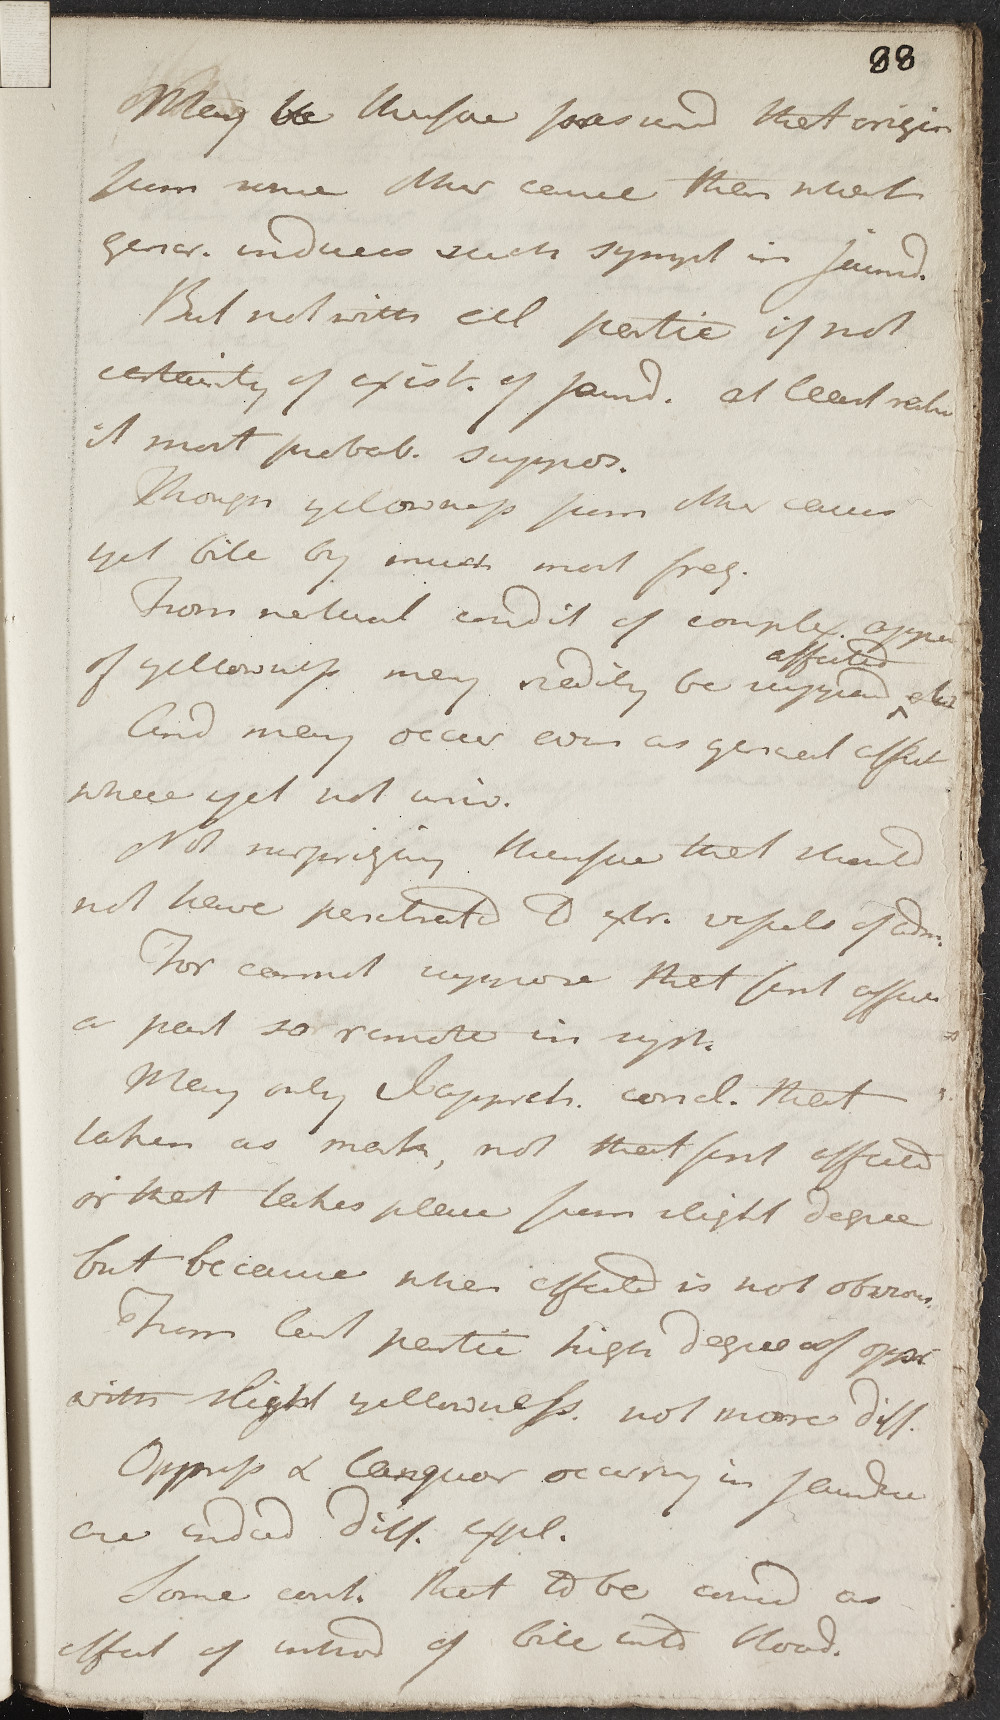 88
May be therefore presumed that origin
from some other cause than what
gener. induces such sympt in jaund.
But notwith all partic if not
certainty of exist. of jaund. at least
it most probab. suppos.
Though yellowness from other causes
yet bile by much most freq.
From natural condit of complex. appea
affected
of yellowness may readily be
And may occur even as general effect
where yet not univ.
Not surprizing therefore that should
not have penetrated to extr. vessels of adn.
For cannot suppose that first affects
a part so remote in syst.
May only I appreh. concl. that
taken as mark, not that first affected
or that takes place from slight degree
but because when affected is not obvious.
From last partic high degree of oppr
with slight yellowness. not more diff.
Oppress & languor occurring in jaundice
are indeed diff. expl.
Some cont. that to be consid as
effect of introd of bile into blood.